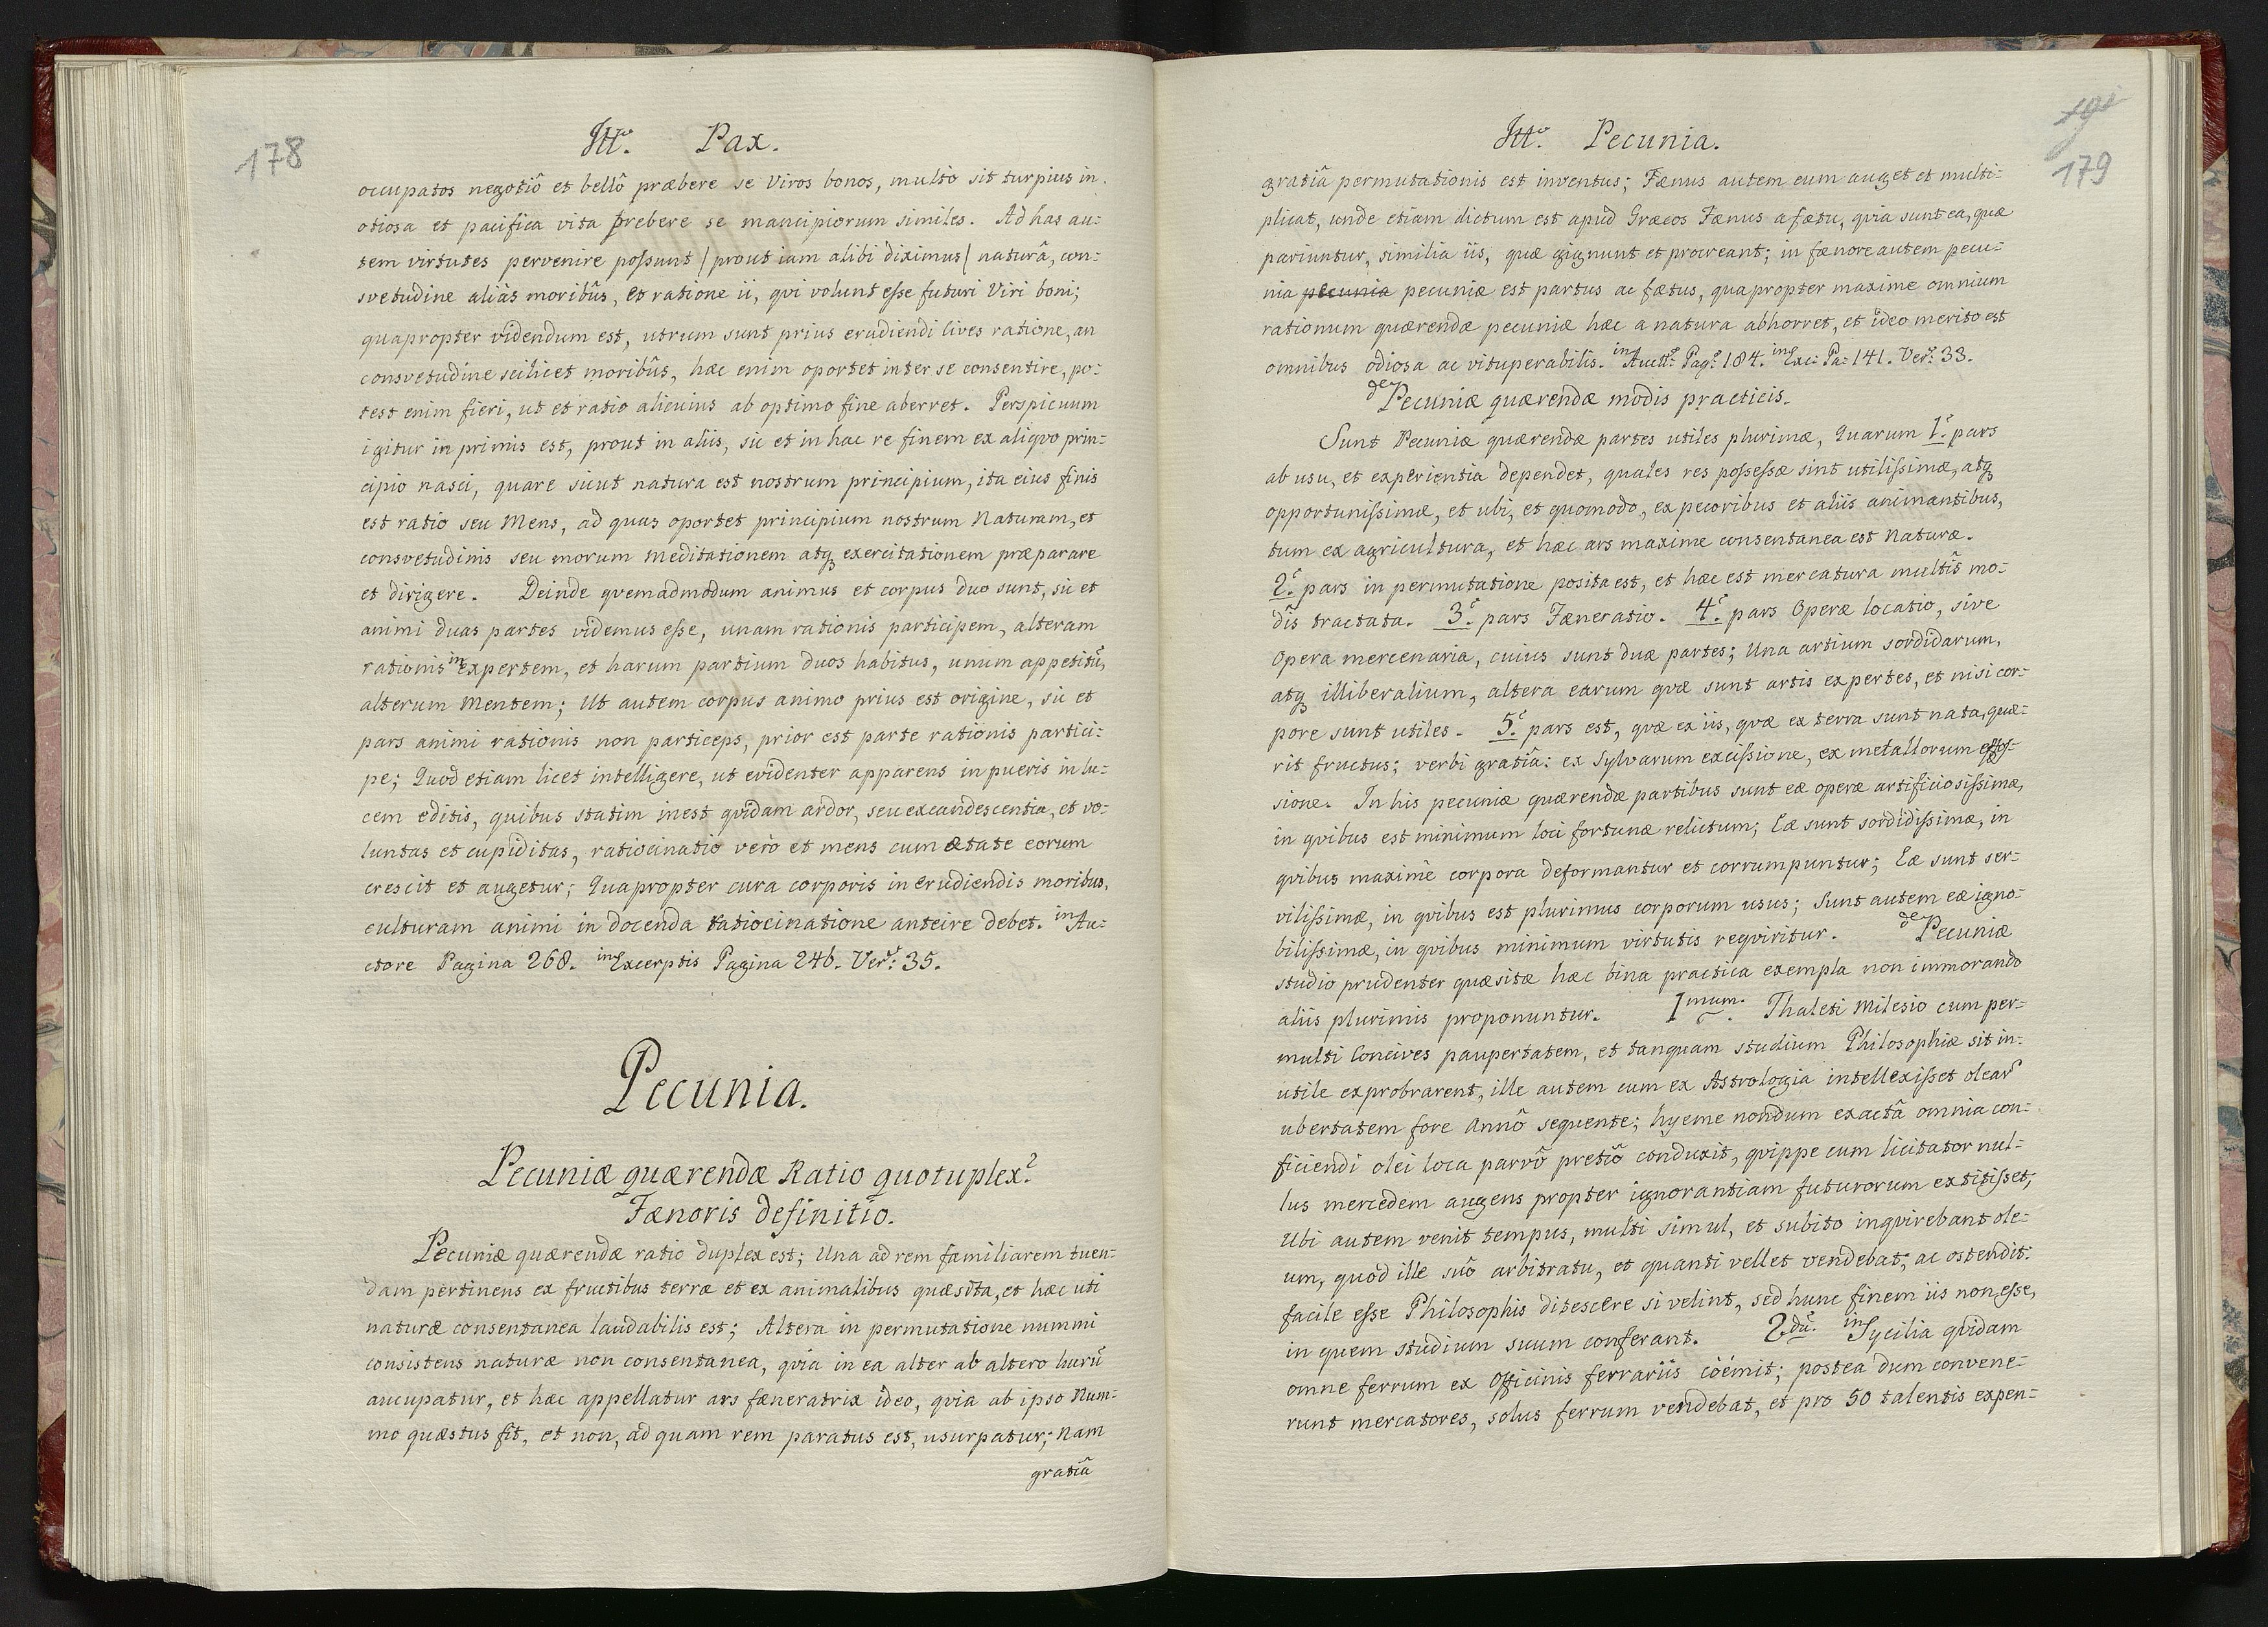 178
Ittº. Pax.
occupatos negotiô et bellô præbere se Viros bonos, multo sit turpius in
otiosa et pacifica vita prebere se mancipiorum similes. Ad has au:
tem virtutes pervenire possunt / prout iam alibi diximus / naturâ, con:
svetudine aliàs moribûs, et ratione ii, qvi volunt esse futuri Viri boni;
quapropter videndum est, utrum sunt prius erudiendi Cives ratione, an
consvetudine scilicet moribûs, hæc enim oportet inter se consentire, po:
test enim fieri, ut et ratio alicuius ab optimo fine aberret. Perspicuum
igitur in primis est, prout in aliis, sic et in hac re finem ex aliqvo prin:
cipio nasci, quare sicut natura est nostrum principium, ita eius finis
est ratio seu Mens, ad quas oportet principium nostrum Naturam, et
consvetudinis seu morum meditationem atq exercitationem præparare
et dirigere. Deinde qvemadmodum animus et corpus duo sunt, sic et
animi duas partes videmus esse, unam rationis participem, alteram
rationis in expertem, et harum partium duos habitus, unum appetitû,
alterum Mentem; Ut autem corpus animo prius est origine, sic et
pars animi rationis non particeps, prior est parte rationis partici:
pe; Quod etiam licet intelligere, ut evidenter apparens in pueris in lu:
cem editis, quibus statim inest qvidam ardor, seu excandescentia, et vo:
luntas et cupiditas, ratiocinatio verò et mens cum ætate eorum
crescit et augetur; Quapropter cura corporis in erudiendis moribus,
culturam animi in docenda ratiocinatione anteire debet. in Au:
ctore Pagina 268. in Excerptis Pagina 246. Vers: 35.
Pecunia.
Pecuniæ quærendæ Ratio quotuplex?
Fænoris definitio.
Pecuniæ quærendæ ratio duplex est; Una ad rem familiarem tuen:
dam pertinens ex fructibus terræ et ex animalibus quæsita, et hæc uti
naturæ consentanea laudabilis est; Altera in permutatione nummi
consistens naturæ non consentanea, qvia in ea alter ab altero lucrû
aucupatur, et hæc appellatur ars fæneratrix ideo, qvia ab ipso Num:
mo quæstus fit, et non, ad quam rem paratus est, usurpatur; Nam
gratiâ
191
179
Ittº. Pecunia.
gratiâ permutationis est inventus; Fænus autem eum auget et multi:
plicat, unde etiam dictum est apud Græcos Fænus a fætu, qvia sunt ea, quæ
pariuntur, similia iis, quæ gignunt et procreant; in fænore autem pecu:
nia pecunia pecuniæ est partus ac fætus, quapropter maxime omnium
rationum quærendæ pecuniæ hæc a natura abhorret, et ideo merito est
omnibus odiosa ac vituperabilis. in Auctt: Pag: 184. in Exc: Pa: 141. Ver: 33.
de Pecuniæ quærendæ modis practicis.
Sunt Pecuniæ quærendæ partes utiles plurimæ, Quarum 1. pars
ab usu, et experientia dependet, quales res possessæ sint utilissimæ, atq
opportunissimæ, et ubi, et quomodo, ex pecoribus et aliis animantibus,
tum ex agricultura, et hæc ars maxime consentanea est Naturæ.
2. pars in permutatione posita est, et hæc est mercatura multîs mo:
dîs tractata. 3. pars Fæneratio. 4. pars Operæ locatio, sive
Opera mercenaria, cuius sunt duæ partes; Una artium sordidarum,
atq illiberalium, altera earum qvæ sunt artis expertes, et nisi cor:
pore sunt utiles. 5. pars est, qvæ ex iis, qvæ ex terra sunt nata, quæ:
rit fructus; verbi gratiâ: ex Sylvarum excissione, ex metallorum effos:
sione. In his pecuniæ quærendæ partibus sunt eæ operæ artificiosissimæ,
in qvibus est minimum loci fortunæ relictum; Eæ sunt sordidissimæ, in
qvibus maximè corpora deformantur et corrumpuntur; Eæ sunt ser:
vilissimæ, in qvibus est plurimus corporum usus; Sunt autem eæ igno:
bilissimæ, in qvibus minimum virtutis reqviritur. de Pecuniæ
studio prudenter quæsitæ hæc bina practica exempla non immorando
aliis plurimis proponuntur. 1mum. Thaleti Milesio cum per:
multi Concives paupertatem, et tanquam studium Philosophiæ sit in:
utile exprobrarent, ille autem cum ex Astrologia intellexisset olear
ubertatem fore Annô sequente; hyeme nondum exactâ omnia con:
ficiendi olei loca parvô pretiô conduxit, qvippe cum licitator nul:
lus mercedem augens propter ignorantiam futurorum extitisset;
Ubi autem venit tempus, multi simul, et subito inqvirebant ole:
um, quod ille suô arbitratu, et quanti vellet vendebat; ac ostendit:
facile esse Philosophis ditescere si velint, sed hunc finem iis non esse,
in quem studium suum conferant. 2.dû. in Sycilia qvidam
omne ferrum ex Officinis ferrariis coëmit; postea dum convene:
runt mercatores, solus ferrum vendebat, et pro 50 talentis expen: